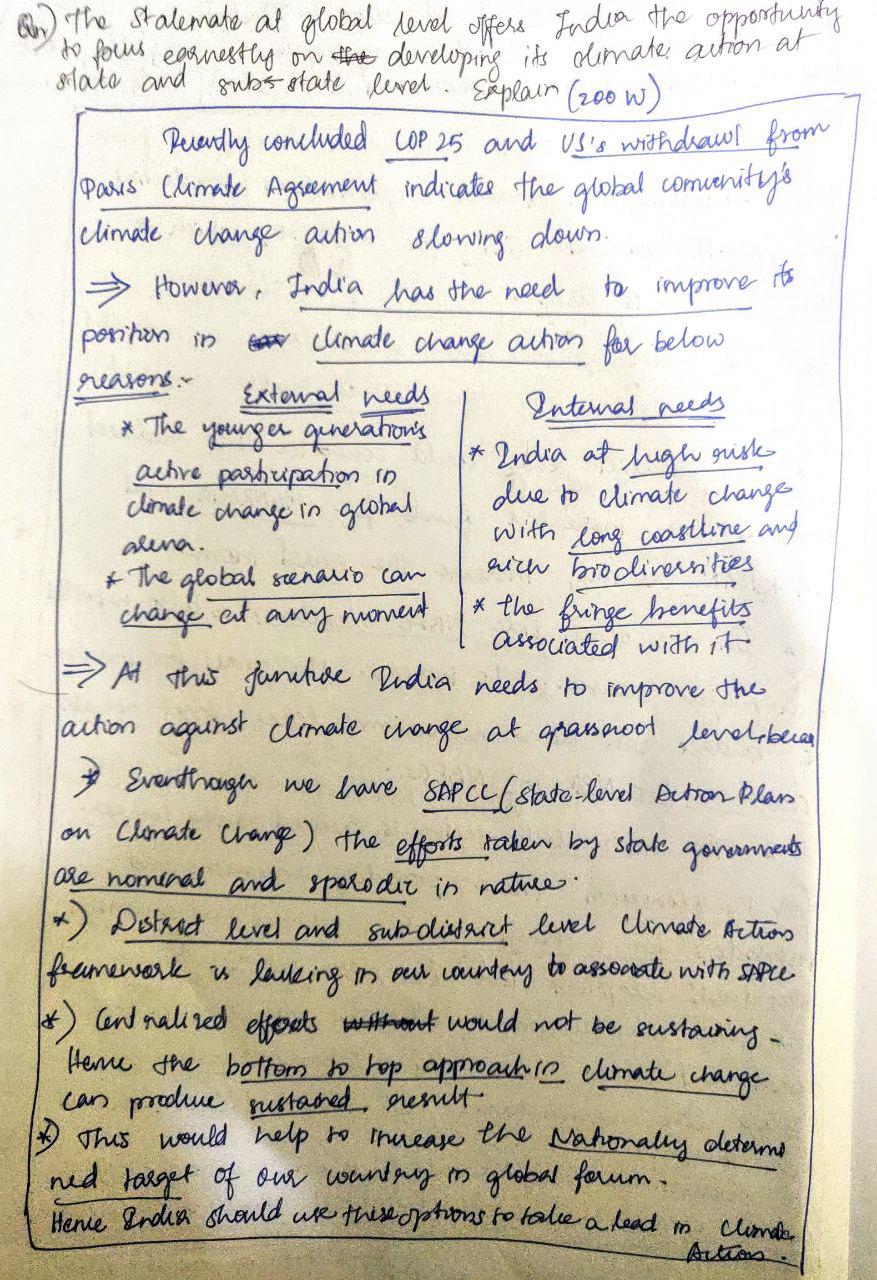 Qn) The Stalemate at global level offers India the opportunity
to focus earnestly on the developing its climate action at
state and sub-state level. Explain (200 W)
Recently concluded COP 25 and US's withdrawl from
Paris Climate Agreement indicates the global comunity's
climate change action slowing down.
⇒ However, India has the need to improve its
position in climate change action for below
reasons:-
External needs
* The younger generation's
active participation in
climate change in global
arena.
* The global scenario can
change at any moment
Internal needs
* India at high risk
due to climate change
with long coastline and
rich biodiversities
* the fringe benefits
associated with it
⇒ At this juncture India needs to improve the
action against climate change at grassroot level, becau
*) Eventhough we have SAPCC (State-level Action Plan
on Climate Change) the efforts taken by state governments
are nominal and sporodic in nature.
*) District level and subdistrict level Climate Action
framework is lacking in our country to associate with SAPCC
*) Centralized efforts without would not be sustaining.
Hence the bottom to top approach in climate change
can produce sustained result
*) This would help to increase the Nationally determi
ned target of our country in global forum.
Hence India should use these options to take a lead in Climate
Action.